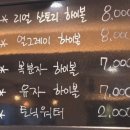 * 리얼 산토리 하이볼 8,000
* 얼그레이 하이볼 8,000
* 복분자 하이볼 7,000
* 유자 하이볼 7,000
* 토닉워터 2,000